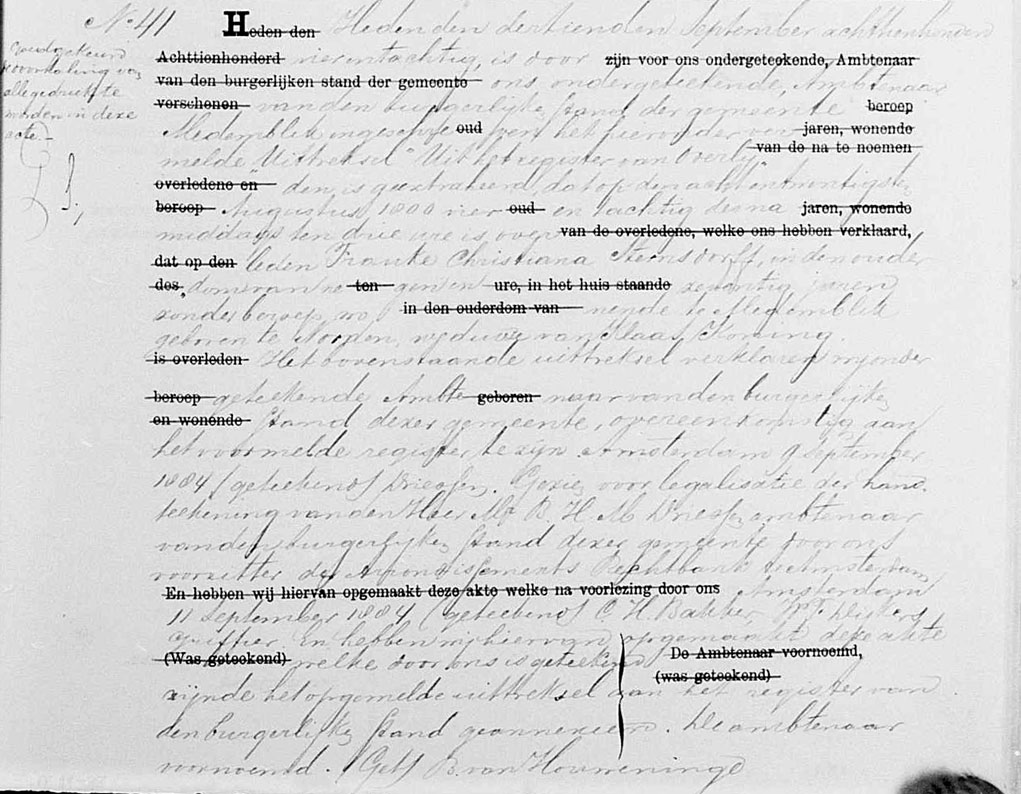 No 41 Heden den dertienden September achttienhonderd
Heden den
Achttienhonderd vierentachtig, is door zijn voor ons ondergeteekende, Ambtenaar
van den burgerlijken stand der gemeente ons ondergeteekende, Ambtenaar
verschenen van den burgerlijken stand der gemeente beroep
Medemblik ingeschreven het hieronder ver oud jaren, wonende
melde "Uittreksel" Uit het register van Overlij van de na te noemen
overledene en den, is geextraheerd, dat op den achtentwintigsten
beroep Augustus, 1800 vier oud en tachtig des na jaren, wonende
middags ten drie ure is over van de overledene, welke ons hebben verklaard,
dat op den leden Frauke Christiana Sternsdorff, in den ouder
des, dom van ten ure, in het huis staande zeventig jaren
zonder beroep, wo in den ouderdom van nende te Medemblik
geboren te Norden, weduwe van Klaas Koning.
is overleden Het bovenstaande uittreksel verklaren wij onder
beroep geteekende Ambte geboren naar van den burgerlijken
en wonende stand dezer gemeente, overeenkomstig aan
het voormelde register te zijn Amsterdam 9 September
1884 (geteekend) Driessen. Gezien voor legalisatie der hand
teekening van den Heer Mr B. H. M. Driessen ambtenaar
van den burgerlijken stand dezer gemeente door ons
voorzitter der Arrondissements Rechtbank te Amsterdam
En hebben wij hiervan opgemaakt deze akte welke na voorlezing door ons Amsterdam
11 September 1884 (geteekend) C. H. Bakker,
Griffier En hebben wij hiervan opgemaakt deze akte
(Was geteekend) welke door ons is geteekend De Ambtenaar voornoemd,
(was geteekend)
zijnde het opgemelde uittreksel aan het register van
den burgerlijken stand geannexeerd. De ambtenaar
voornoemd. (Get) B. van Houweninge
Goedgekeurd
doorhaling van
alle gedrukte
woorden in deze
acte.